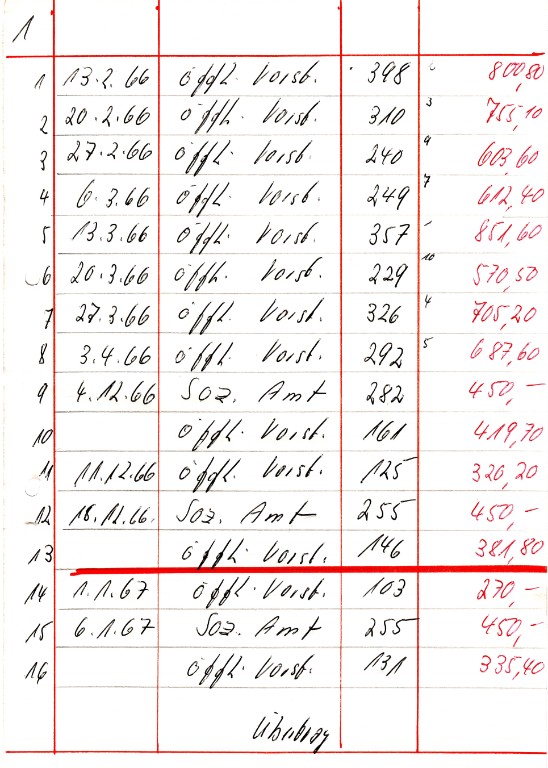 1
1 13.2.66 öffl. Vorst. 398 800,80
2 20.2.66 öffl. Vorst. 310 3 755,10
3 27.2.66 öffl. Vorst. 240 9 603,60
4 6.3.66 öffl. Vorst. 249 7 612,40
5 13.3.66 öffl. Vorst. 357 1 851,60
6 20.3.66 öffl. Vorst. 229 10 570,50
7 27.3.66 öffl. Vorst. 326 4 705,20
8 3.4.66 öffl. Vorst. 292 5 687,60
9 4.12.66 Soz. Amt 282 450,-
10 öffl. Vorst. 161 419,70
11 11.12.66 öffl. Vorst. 125 320,20
12 18.12.66. Soz. Amt 255 450,-
13 öffl. Vorst. 146 381,80
14 1.1.67 öffl. Vorst. 103 270,-
15 6.1.67 Soz. Amt 255 450,-
16 öffl. Vorst. 131 335,40
Übertrag